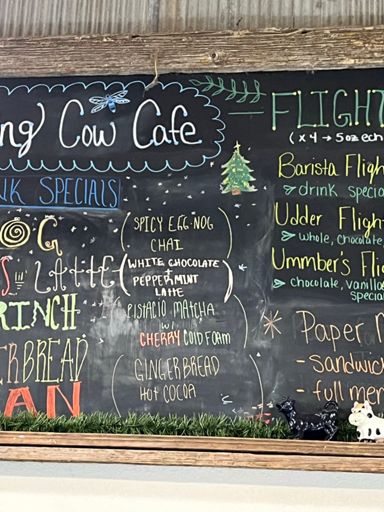 ng Cow Cafe
NK SPECIALS
OG
S Latte
RINCH
ERBREAD
AN
(SPICY EGG-NOG
CHAI)
(WHITE CHOCOLATE
+
PEPPERMINT
LATTE)
(PISTACIO MATCHA
w/
CHERRY COLD FOAM)
(GINGERBREAD
HOT COCOA)
FLIGHT
(x4 → 5oz ech
Barista Fligh
drink specia
Udder Fligh
whole, chocolate
Ummber's Flig
chocolate, vanilla
specia
Paper M
- sandwic
- full mer